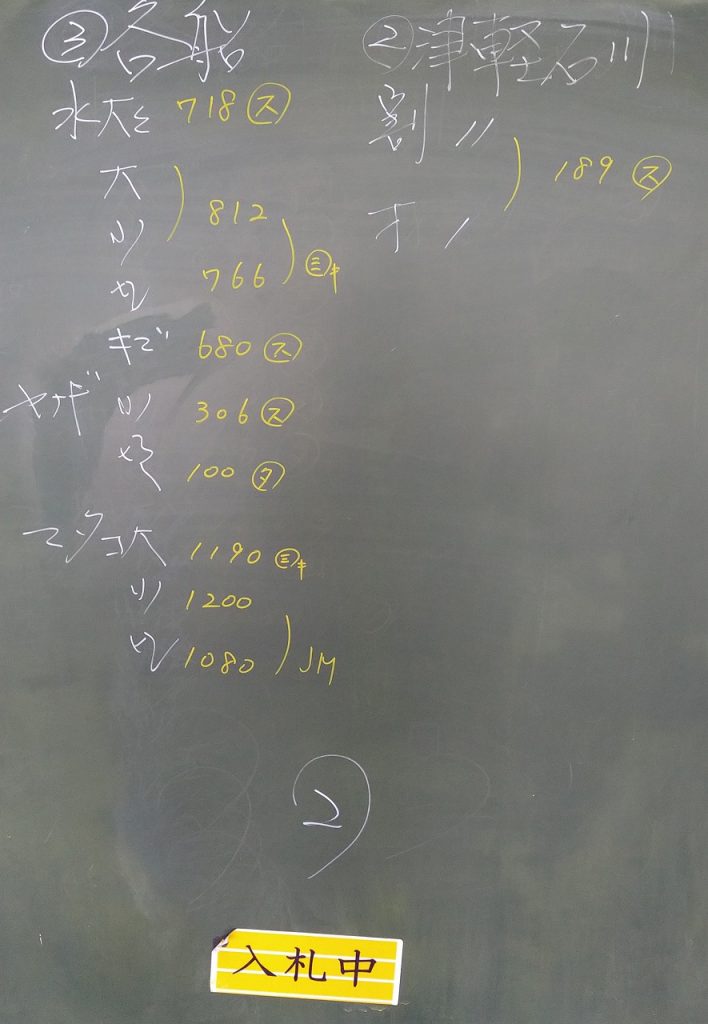 ③各船
水大 718 ㋜
大
小 812
766
キズ 680 ㋜
ヤナギ 小 306 ㋜
100 ㋟
マダコ大 1190
小 1200
1080 JM
②津軽石川
割 〃
オ ノ
189 ㋜
2
入札中